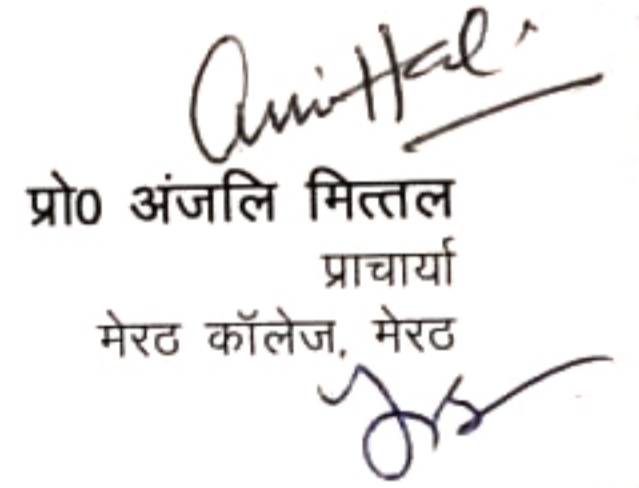 प्रो0 अंजलि मित्तल
प्राचार्या
मेरठ कॉलेज, मेरठ